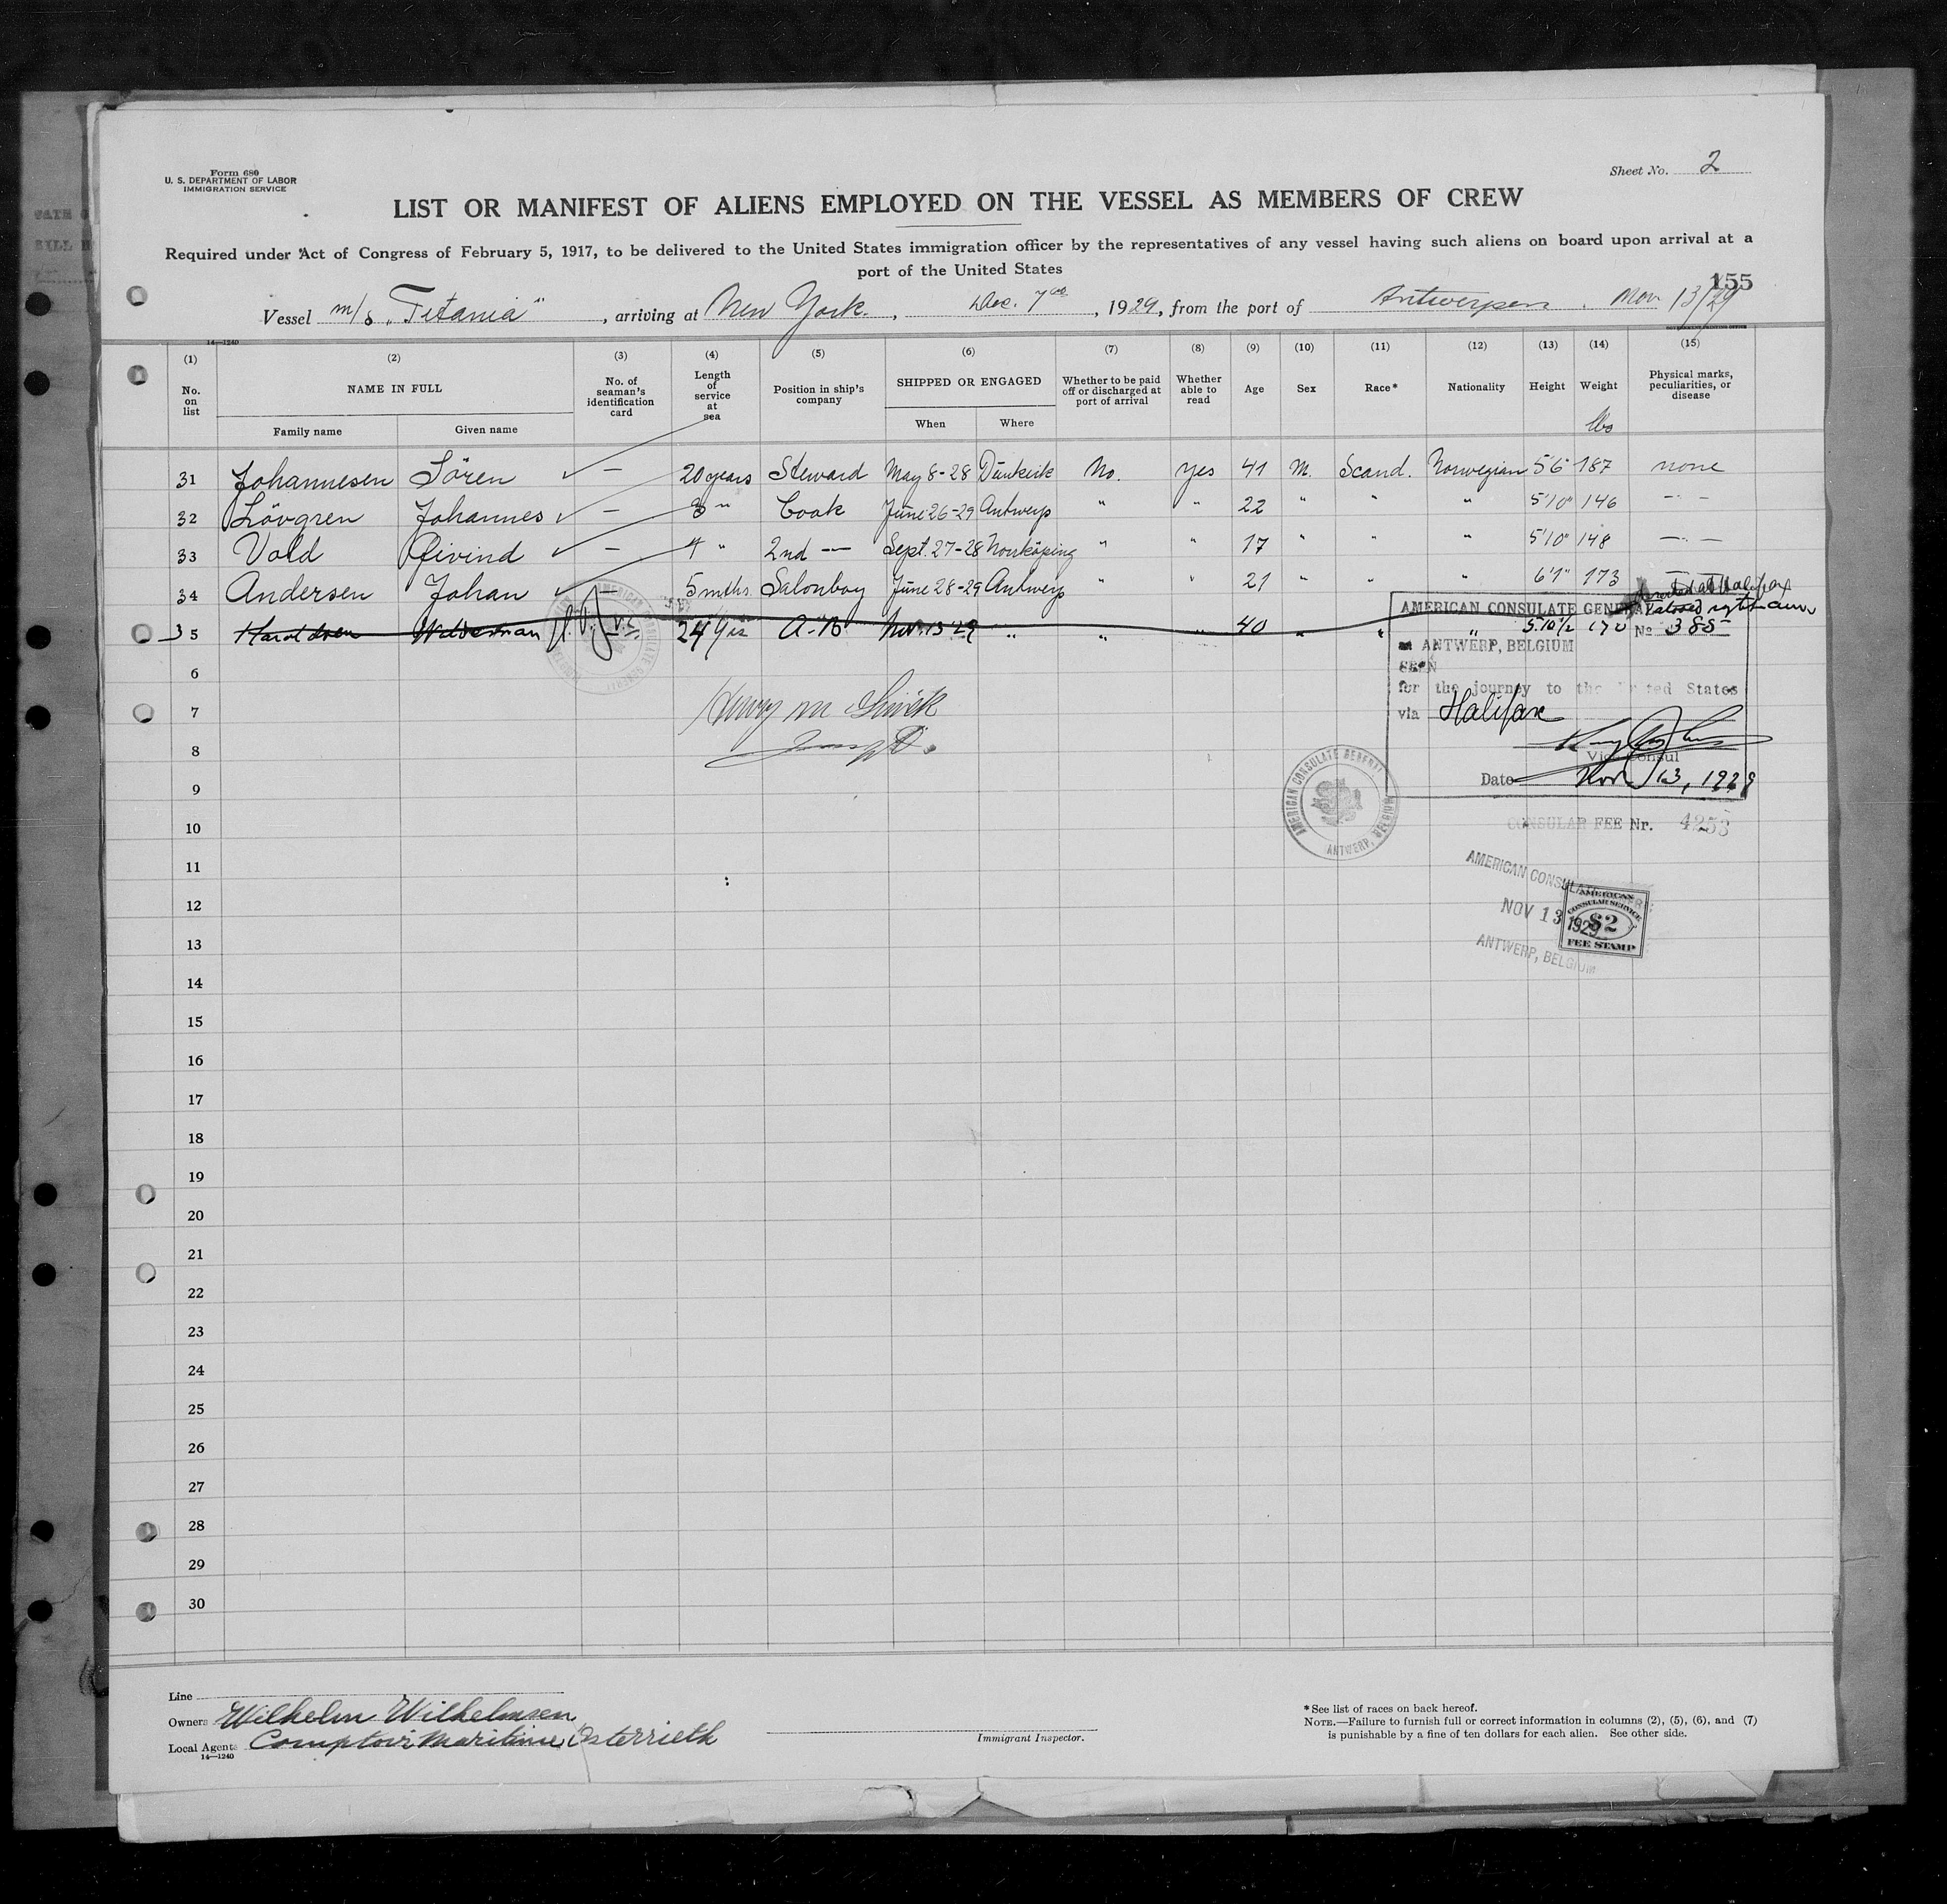 Form 680
U. S. DEPARTMENT OF LABOR
IMMIGRATION SERVICE
Sheet No. 2
LIST OR MANIFEST OF ALIENS EMPLOYED ON THE VESSEL AS MEMBERS OF CREW
Required under Act of Congress of February 5, 1917, to be delivered to the United States immigration officer by the representatives of any vessel having such aliens on board upon arrival at a
port of the United States
155
Vessel m/s "Titania", arriving at New York, Dec. 7th, 1929, from the port of Antwerpen. Nov 13/29
14—1240
(1) (2) (3) (4) (5) (6) (7) (8) (9) (10) (11) (12) (13) (14) (15)
No. on list
NAME IN FULL
Family name
Given name
No. of seaman's identification card
Length of service at sea
Position in ship's company
SHIPPED OR ENGAGED
When
Where
Whether to be paid off or discharged at port of arrival
Whether able to read
Age
Sex
Race*
Nationality
Height
Weight
lbs
Physical marks, peculiarities, or disease
31 Johannesen Sören — 20 years Steward May 8-28 Dunkerk No. yes 41 M. Scand. Norwegian 5'6" 187 none
32 Lövgren Johannes — 3 " Cook June 26-29 Antwerp " " 22 " " " 5'10" 146 — " —
33 Vold Øivind — 1 " 2nd — " — Sept. 27-28 Norrköping " " 17 " " " 5'10" 148 — " —
34 Andersen Johan — 5 mths. Salonboy June 28-29 Antwerp " " 21 " " " 6'1" 173
35 Haraldsen 24 yrs A.B. Nov. 13 29 " " " 40 " " " 5.10½ 170
6
7
8
9
10
11
12
13
14
15
16
17
18
19
20
21
22
23
24
25
26
27
28
29
30
AMERICAN CONSULATE GENERAL
No 385
ANTWERP, BELGIUM
SEEN
for the journey to the United States
via Halifax
Vice Consul
Date Nov 13, 1929
AMERICAN CONSULATE GENERAL
ANTWERP, BELGIUM
CONSULAR FEE Nr. 4253
AMERICAN CONSULATE
NOV 13 1929
ANTWERP, BELGIUM
AMERICAN
CONSULAR SERVICE
$2
FEE STAMP
Line
Owners Wilhelm Wilhelmsen
Local Agents Comptoir Maritime Osterrieth
14—1240
Immigrant Inspector.
*See list of races on back hereof.
NOTE.—Failure to furnish full or correct information in columns (2), (5), (6), and (7)
is punishable by a fine of ten dollars for each alien. See other side.